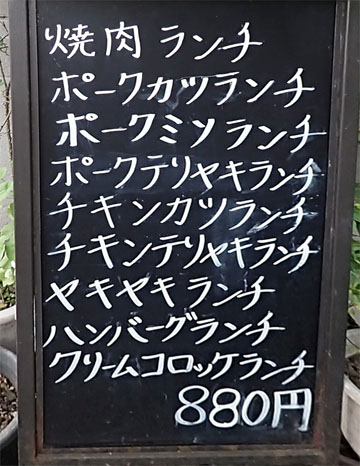 焼肉ランチ
ポークカツランチ
ポークミソランチ
ポークテリヤキランチ
チキンカツランチ
チキンテリヤキランチ
ヤキヤキランチ
ハンバーグランチ
クリームコロッケランチ
880円